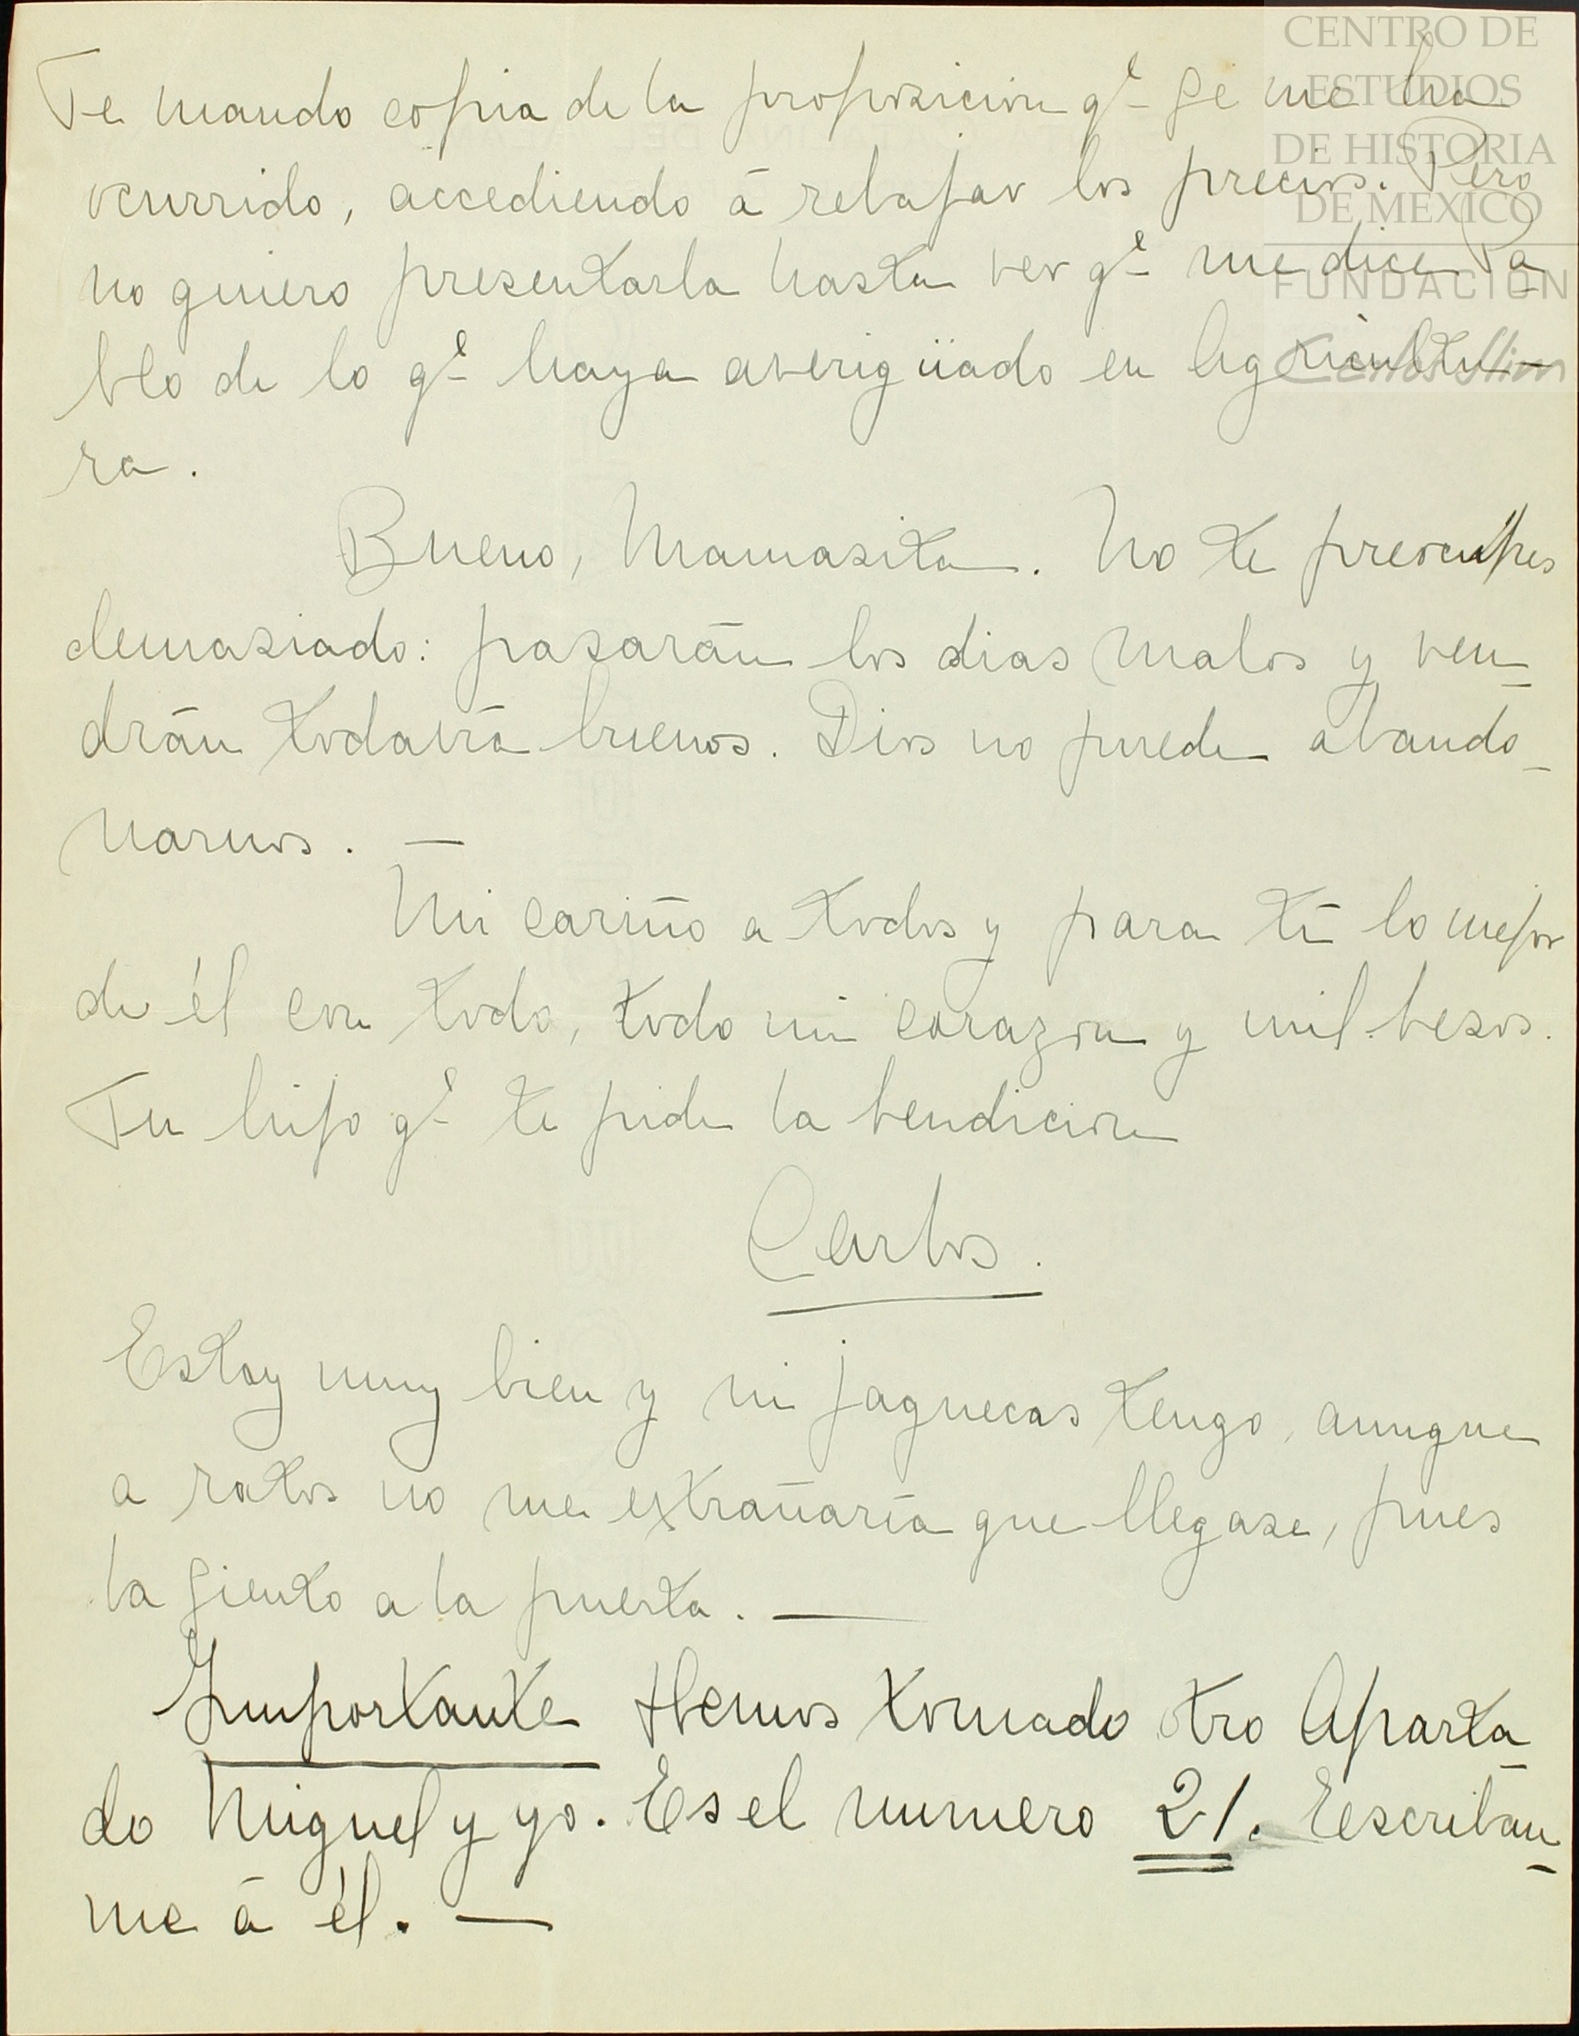 CENTRO DE
ESTUDIOS
DE HISTORIA
DE MEXICO
FUNDACION
Carlos Slim
Te mando copia de la proposicion qe se me ha
ocurrido, accediendo á rebajar los precios. Pero
no quiero presentarla hasta ver qe me dice Pa-
blo de lo qe haya averigüado en Agricultu-
ra.
Bueno, Mamasita. No te preocupes
demasiado: pasarán los dias malos y ven-
drán todavía buenos. Dios no puede abando-
narnos. —
Mi cariño a todos y para tí lo mejor
de él con todo, todo mi corazon y mil besos.
Tu hijo qe te pide la bendicion
Carlos.
Estoy muy bien y ni jaquecas tengo, aunque
a ratos no me extrañaría que llegase, pues
la siento a la puerta. —
Importante Hemos tomado otro Aparta-
do Miguel y yo. Es el numero 21. Eescriban-
me á él. —